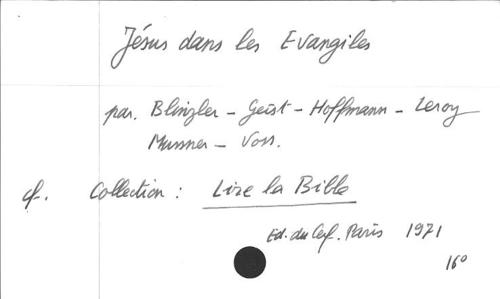 Jésus dans les Evangiles
par. Blinzler - Geist - Hoffmann - Leroy
Mussner - Voss.
cf. Collection : Lire la Bible
Ed. du Cerf. Paris 1971
16°